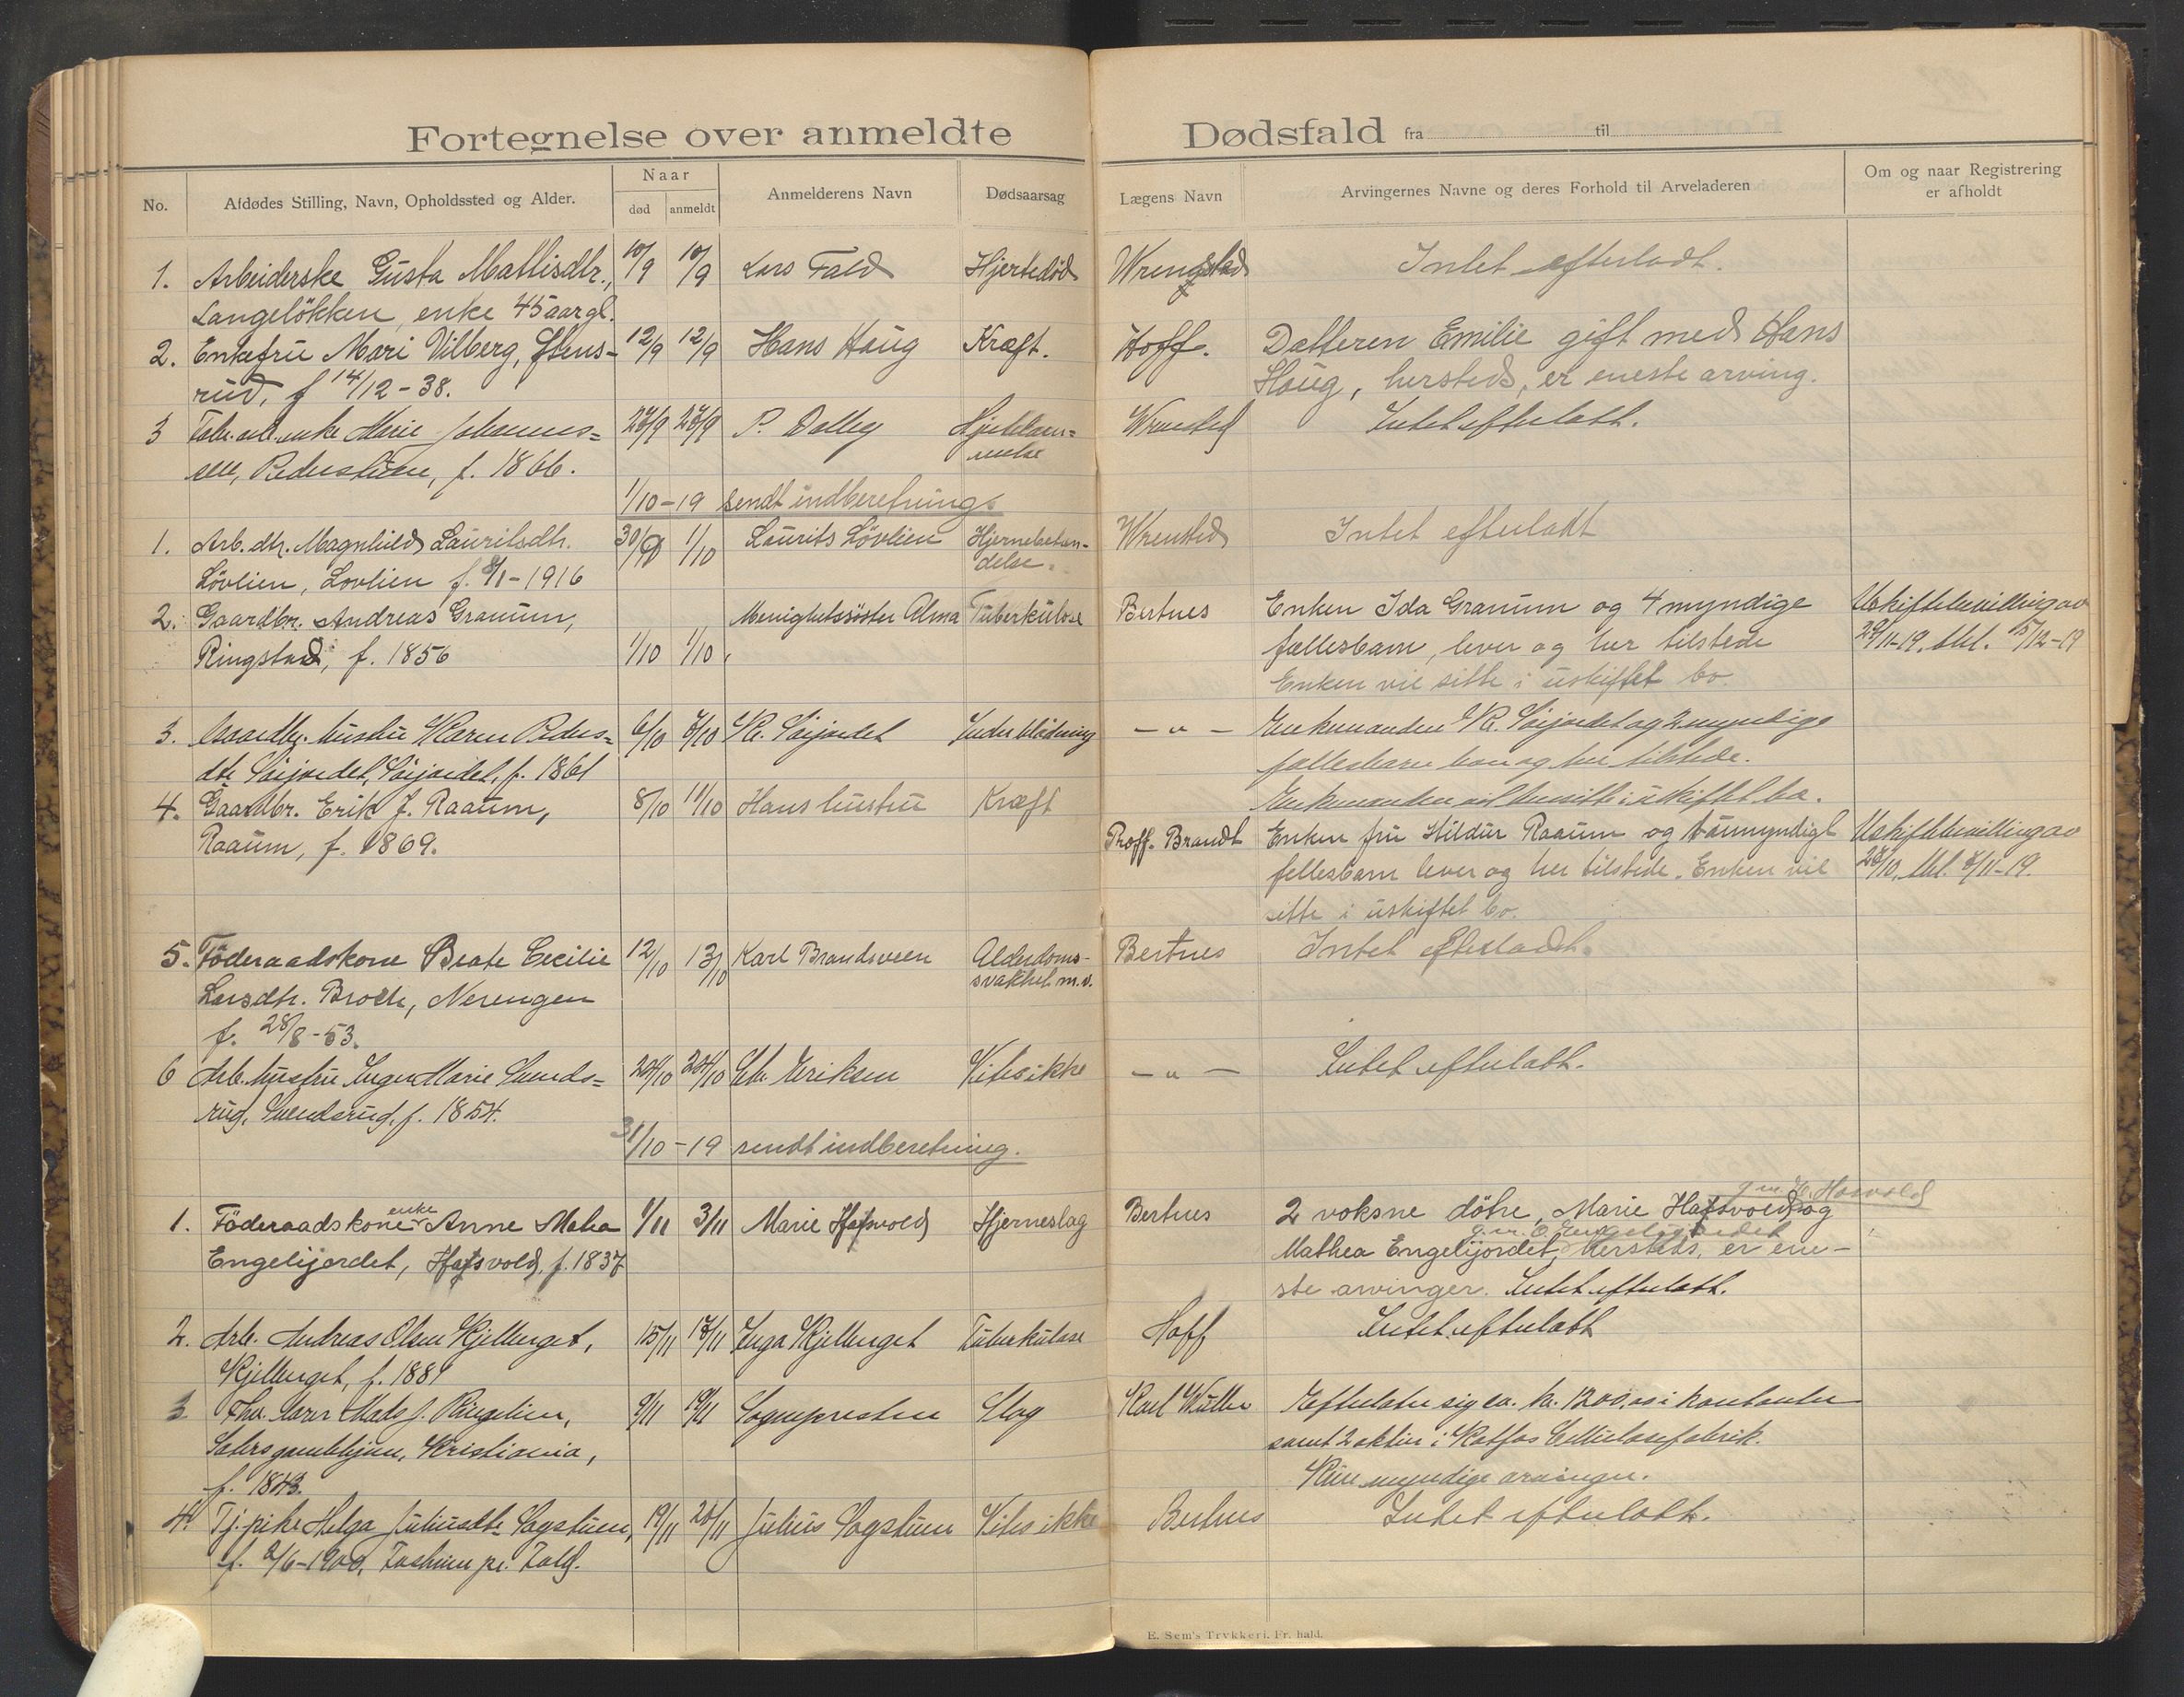 Fortegnelse over anmeldte Dødsfald fra til
No.
Afdødes Stilling, Navn, Opholdssted og Alder.
Naar
død anmeldt
Anmelderens Navn
Dødsaarsag
Lægens Navn
Arvingernes Navne og deres Forhold til Arveladeren
Om og naar Registrering
er afholdt
1. Arbeiderske Gusta Mathisdtr., 10/9 10/9 Lars Fald Hjertedød Wrengsted Intet efterladt.
Langeløkken, enke 45 aar gl.
2. Enkefru Mari Vilberg, Stens- 12/9 12/9 Hans Haug Kræft. Hoff. Datteren Emilie gift med Hans
rud, f 14/12-38. Haug, hersteds, er eneste arving.
3 enke Marie Johannes= 27/9 27/9 P. Dalby Wrensted Intet efterladt.
sen, f. 1866.
1/10-19 sendt indberetning.
1. Arb. dtr. Magnhild Lauritsdtr. 30/9 1/10 Laurits Løvlien Hjernebetæn- Wrensted Intet efterladt
Løvlien, Lovlien f. 8/1-1916 delse.
2. Gaardbr. Andreas Granum, Menighetssøster Alma Tuberkulose Bertnes Enken Ida Granum og 4 myndige Uskiftebevilling av
Ringstad, f. 1856 1/10 1/10 fællesbarn, lever og her tilstede 29/11-19, tkl. 15/12-19
Enken vil sitte i uskiftet bo.
3. Gaardbr. hustru Karen Peders= 6/10 7/10 K. Søijordet Indre blødning - " - Enkemanden K. Søijordet og 2 myndige
dtr. Søijordet, Søijordet, f. 1861 fællesbarn lever og her tilstede.
Enkemanden vil hensitte i uskiftet bo.
4. Gaardbr. Erik J. Raaum, 8/10 11/10 Hans hustru Kræft
Raaum, f. 1869. Proff. Brandt Enken fru Hildur Raaum og umyndigt Uskiftebevilling av
fellesbarn lever og her tilstede. Enken vil 28/10, tkl. 5/11-19.
sitte i uskiftet bo.
5. Føderaadskone Beate Cecilie 12/10 13/10 Karl Brandsveen Alderdoms- Bertnes Intet efterladt.
Larsdtr. Broch, Nerengen svakhet m.v.
f. 28/8-53.
6 Arb. hustru Inger Marie Svends= 24/10 24/10 Chr. Eriksen Vites ikke - " - Intet efterladt.
rud, Svendsrud, f. 1854.
31/10-19 sendt indberetning.
g.m. H. Hasvold
1. Føderaadskone enke Anne Maha 1/11 3/11 Marie Hafsvold Hjerneslag Bertnes 2 voksne døtre, Marie Hafsvold og
g.m. O. Engelijordet
Engelijordet, Hafsvold, f. 1837 Mathea Engelijordet, hersteds, er ene-
ste arvinger. Intet efterladt.
2. Arb. Andreas Olsen Kjellenget, 15/11 17/11 Inga Kjellenget Tuberkulose Hoff Intet efterladt
Kjellenget, f. 1881
3. Mads J. Ringelien, 9/11 19/11 Sognepresten Slag Karl Efterlater sig ca. kr. 1200,00 i kontanter
gamlehjem, Kristiania, samt 2 aktier i Katfos Cellulosefabrik.
f. 1843. Kun myndige arvinger.
4. Tj. pike Helga Juliusdtr. Sagstuen, 19/11 20/11 Julius Sagstuen Vites ikke Bertnes Intet efterladt.
f. 2/6-1900, pr. Fald.
E. Sem's Trykkeri. Fr. hald.